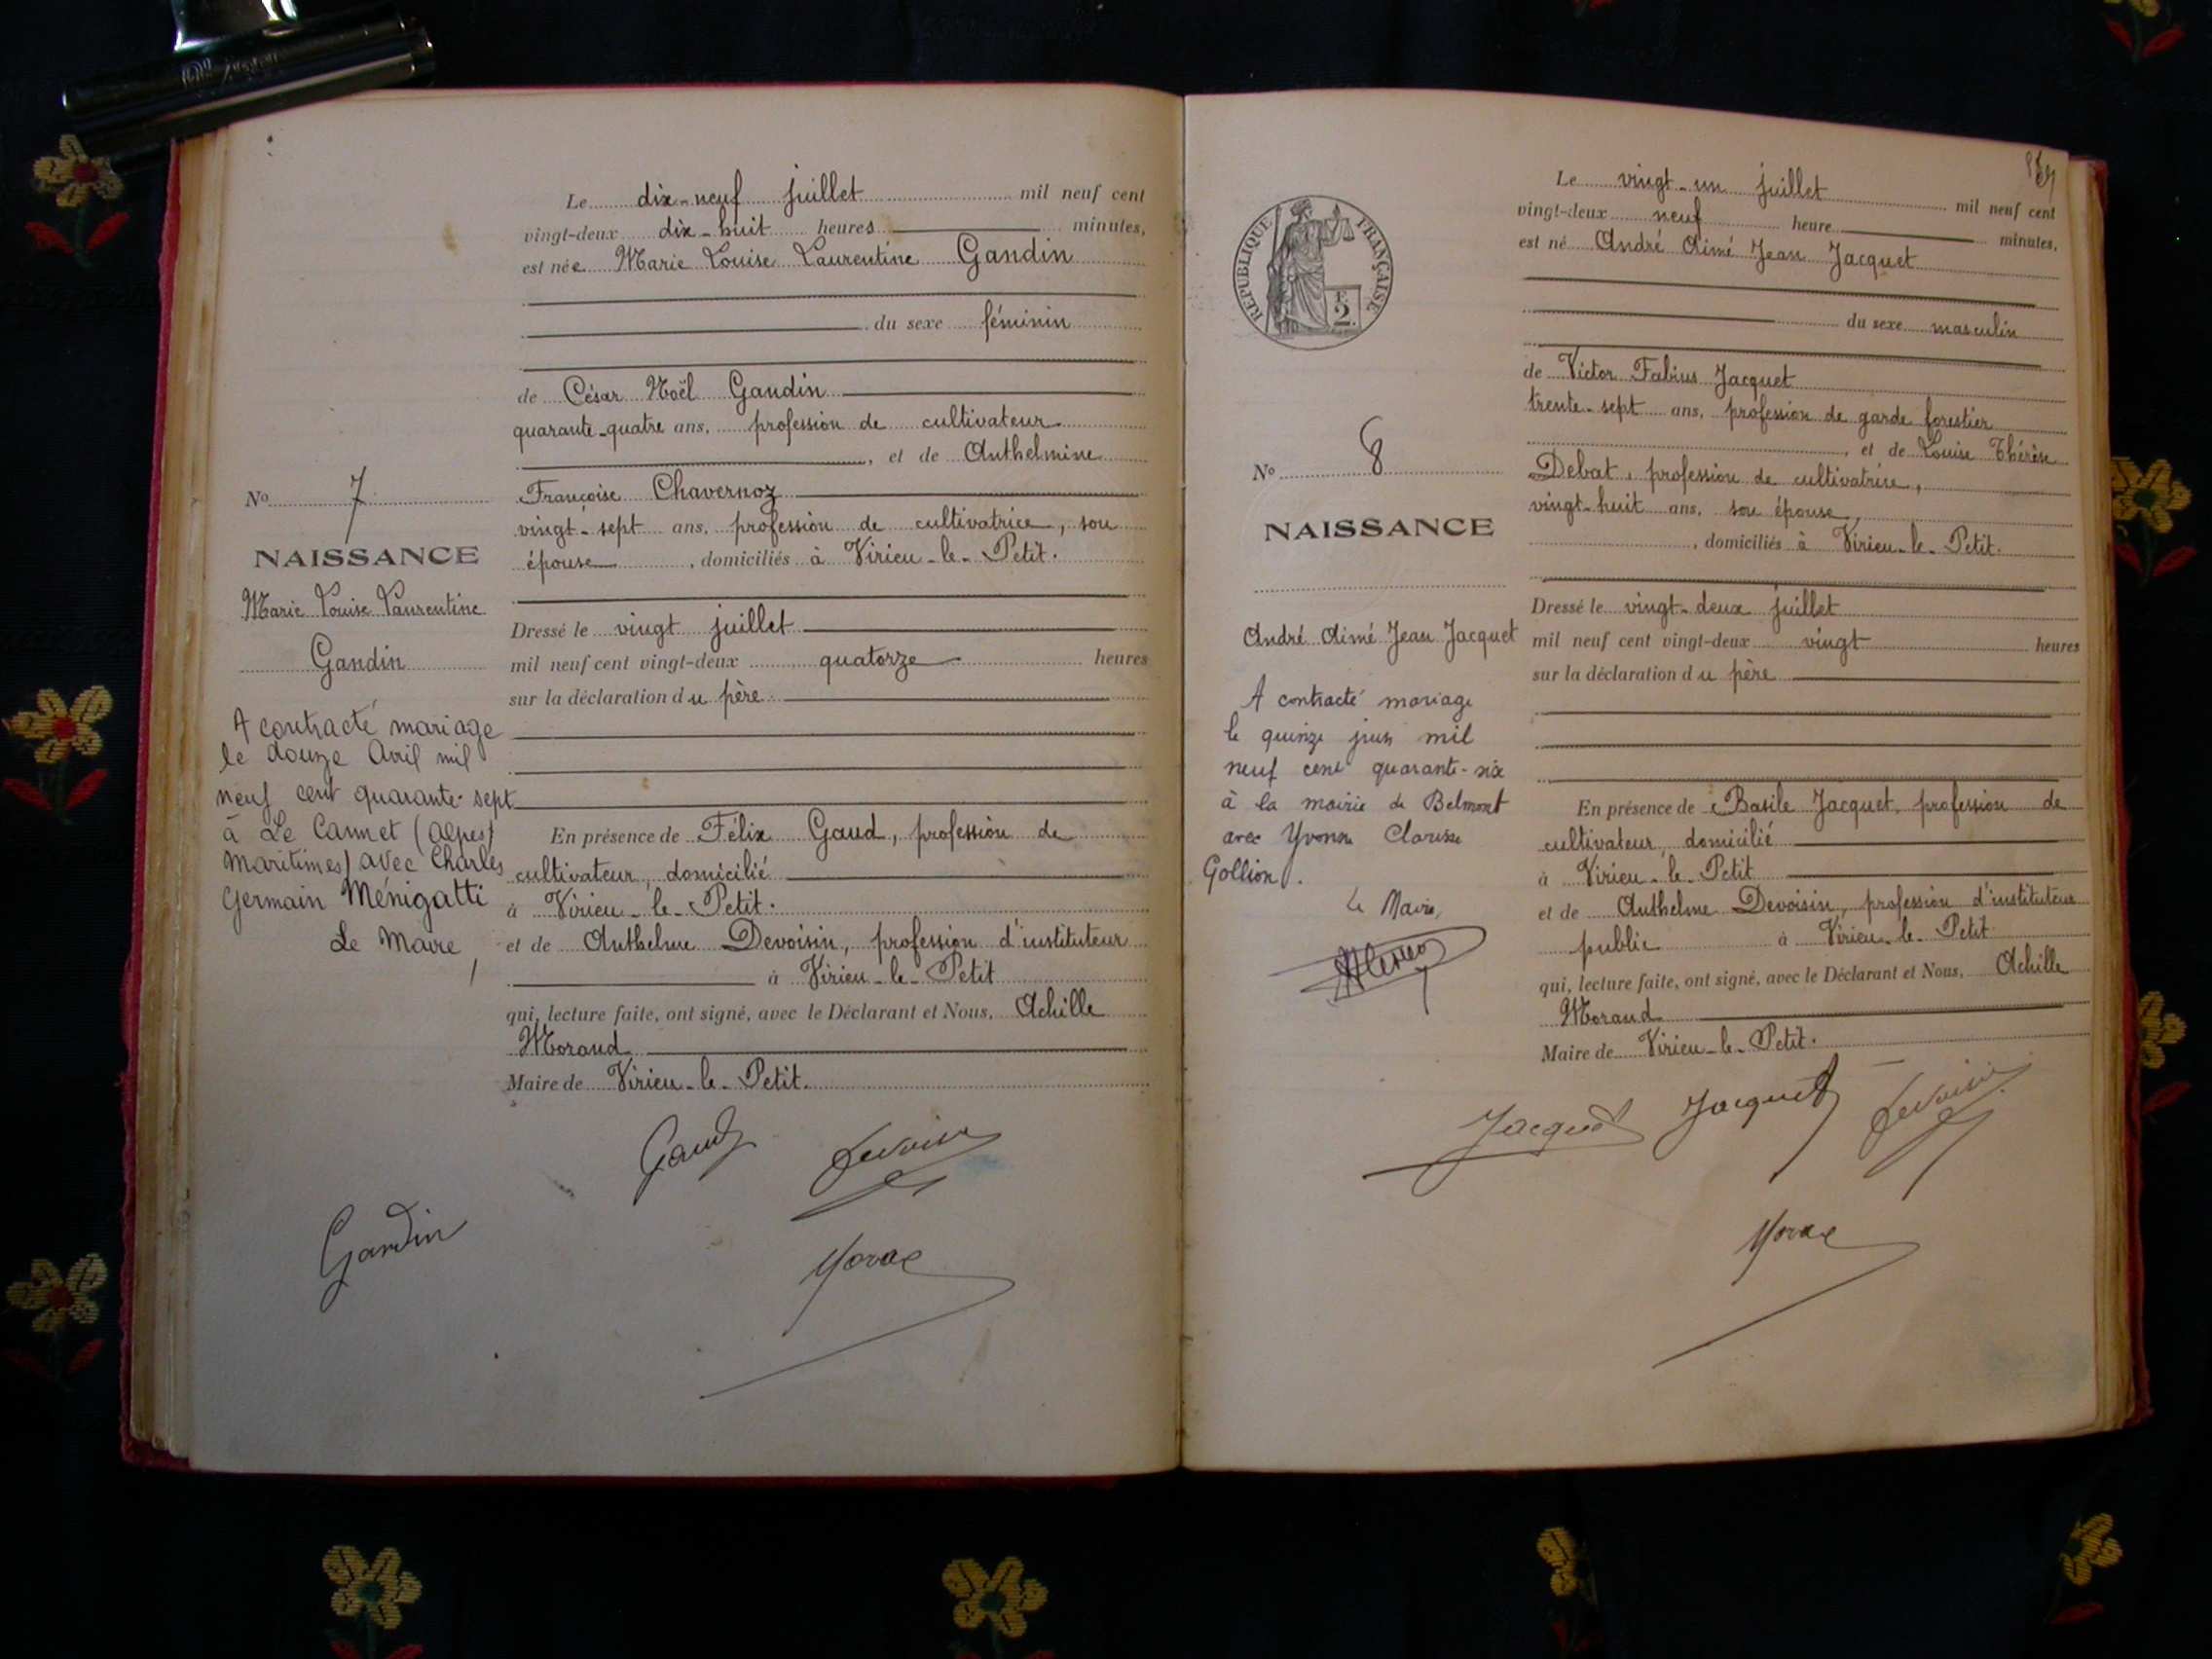 Le dix-neuf juillet mil neuf cent
vingt-deux dix-huit heures minutes,
est née Marie Louise Laurentine Gandin
du sexe féminin
de César Noël Gandin
quarante-quatre ans, profession de cultivateur
, et de Anthelmine
Françoise Chavernoz
vingt-sept ans, profession de cultivatrice, son
épouse, domiciliés à Virieu-le-Petit.
Dressé le vingt juillet
mil neuf cent vingt-deux quatorze heures
sur la déclaration du père
En présence de Félix Gaud, profession de
cultivateur, domicilié
à Virieu-le-Petit.
et de Anthelme Devoisin, profession d'instituteur
à Virieu-le-Petit
qui, lecture faite, ont signé, avec le Déclarant et Nous, Achille
Morand
Maire de Virieu-le-Petit.
No 7
NAISSANCE
Marie Louise Laurentine
Gandin
A contracté mariage
le douze Avril mil
neuf cent quarante-sept
à Le Cannet (Alpes
Maritimes) avec Charles
Germain Ménigatti
Le Maire,
Gaud
Devoisin
Gandin
REPUBLIQUE FRANÇAISE
F.
2
No 8
NAISSANCE
André Aimé Jean Jacquet
A contracté mariage
le quinze juin mil
neuf cent quarante-six
à la mairie de Belmont
avec Yvonne Clarisse
Gollion.
Le Maire,
Le vingt-un juillet mil neuf cent
vingt-deux neuf heure minutes,
est né André Aimé Jean Jacquet
du sexe masculin
de Victor Fabius Jacquet
trente-sept ans, profession de garde forestier
, et de Louise Thérèse
Debat, profession de cultivatrice,
vingt-huit ans, son épouse,
, domiciliés à Virieu-le-Petit.
Dressé le vingt-deux juillet
mil neuf cent vingt-deux vingt heures
sur la déclaration du père
En présence de Basile Jacquet, profession de
cultivateur, domicilié
à Virieu-le-Petit
et de Anthelme Devoisin, profession d'instituteur
public à Virieu-le-Petit
qui, lecture faite, ont signé, avec le Déclarant et Nous, Achille
Morand
Maire de Virieu-le-Petit.
Jacquet Jacquet Devoisin